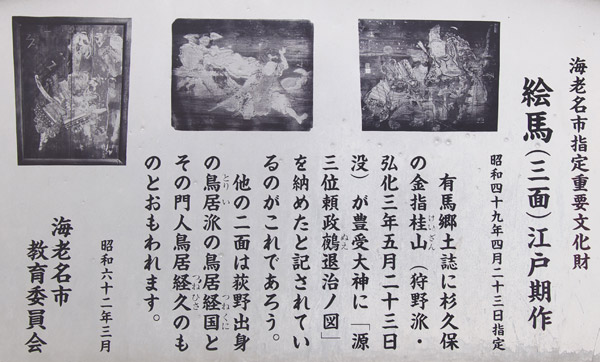 海老名市指定重要文化財
絵馬(三面)江戸期作
昭和四十九年四月二十三日指定
有馬郷土誌に杉久保
の金指桂山(狩野派・
けいざん
弘化三年五月二十三日
没)が豊受大神に「源
三位頼政鵺退治ノ図」
ぬえ
を納めたと記されてい
るのがこれであろう。
他の二面は荻野出身
の鳥居派の鳥居経国と
とりい
つねくに
その門人鳥居経久のも
つねひさ
のとおもわれます。
昭和六十二年三月
海老名市
教育委員会